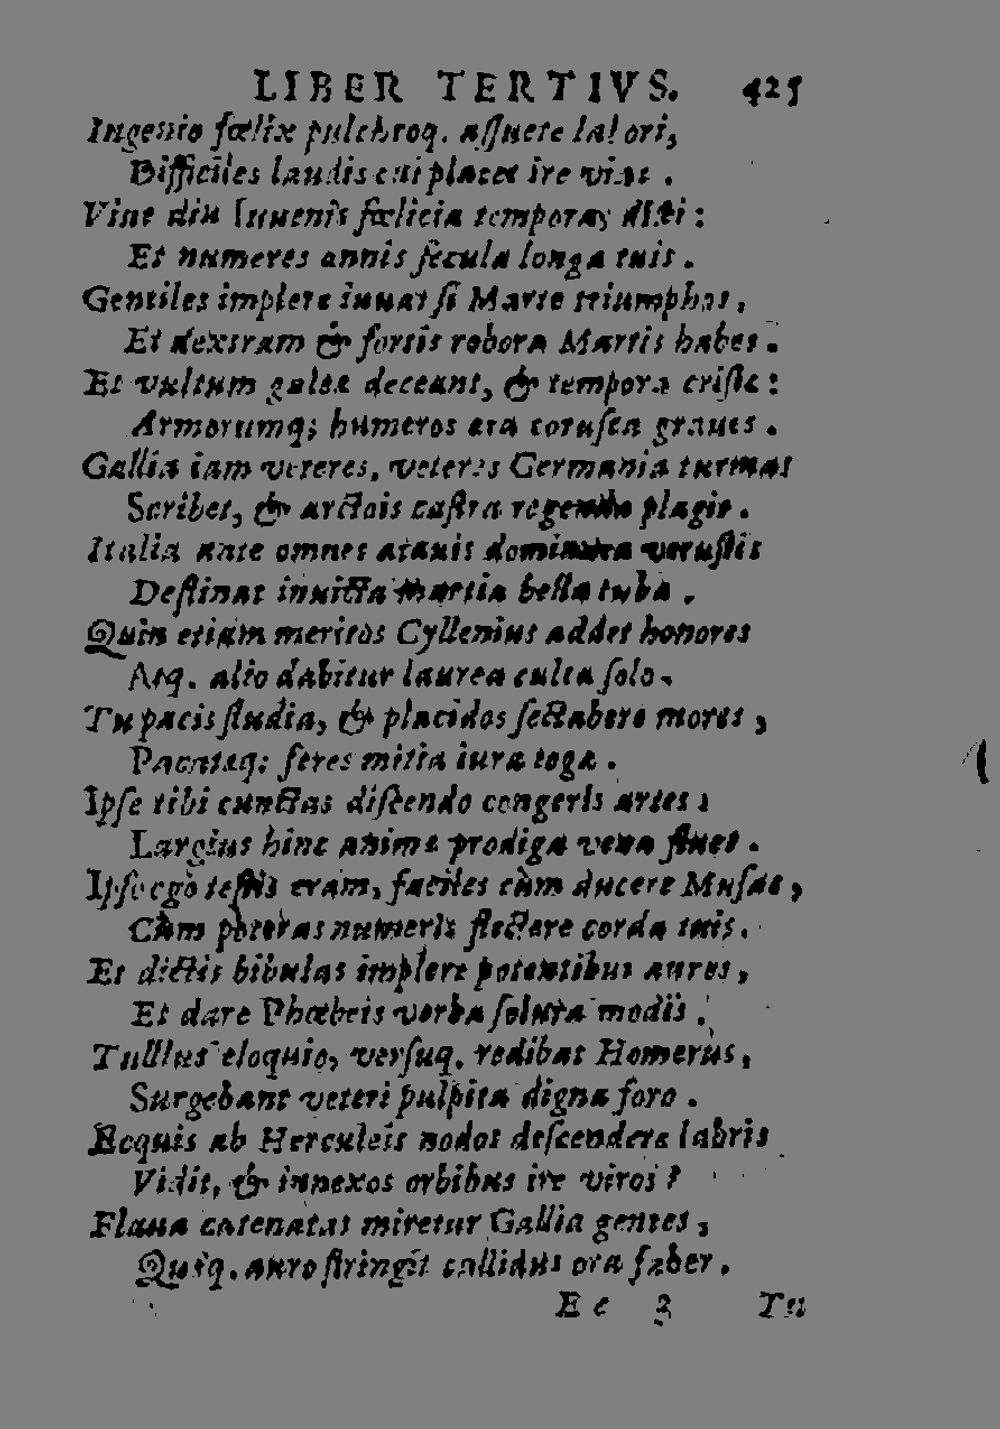 LIBER TERTIVS. 425
Ingenio fœlix pulchroq. assuete labori,
Difficiles laudis cui placet ire vias.
Viue diu Iuuenis fœlicia tempora; disti:
Et numeres annis secula longa tuis.
Gentiles implere iuuat si Marte triumphos,
Et dextram & fortis robora Martis habes.
Et vultum galeæ deceant, & tempora cristæ:
Armorumq; humeros æra corusca graues.
Gallia iam veteres, veteres Germania turmas
Scribet, & arctois castra regenda plagis.
Italia ante omnes atauis dominata vetustis
Destinat inuicta martia bella tuba.
Quin etiam meritos Cyllenius addet honores
Atq. alio dabitur laurea culta solo.
Tu pacis studia, & placidos sectabere mores,
Pacataq; feres mitia iura togæ.
Ipse tibi cunctas discendo congeris artes:
Largius hinc animæ prodiga vena fluet.
Ipse ego testis eram, faciles cùm ducere Musas,
Cùm poteras numeris flectere corda tuis.
Et dictis bibulas implere potentibus aures,
Et dare Phœbeis verba soluta modis.
Tullius eloquio, versuq. redibat Homerus,
Surgebant veteri pulpita digna foro.
Ecquis ab Herculeis nodos descendere labris
Vidit, & innexos orbibus ire viros?
Flaua catenatas miretur Gallia gentes,
Quiq. auro stringit callidus ora faber.
E e 3 Tu